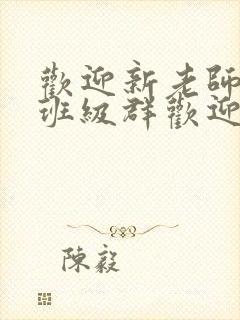 歡迎新老師
班級群歡迎
陳毅